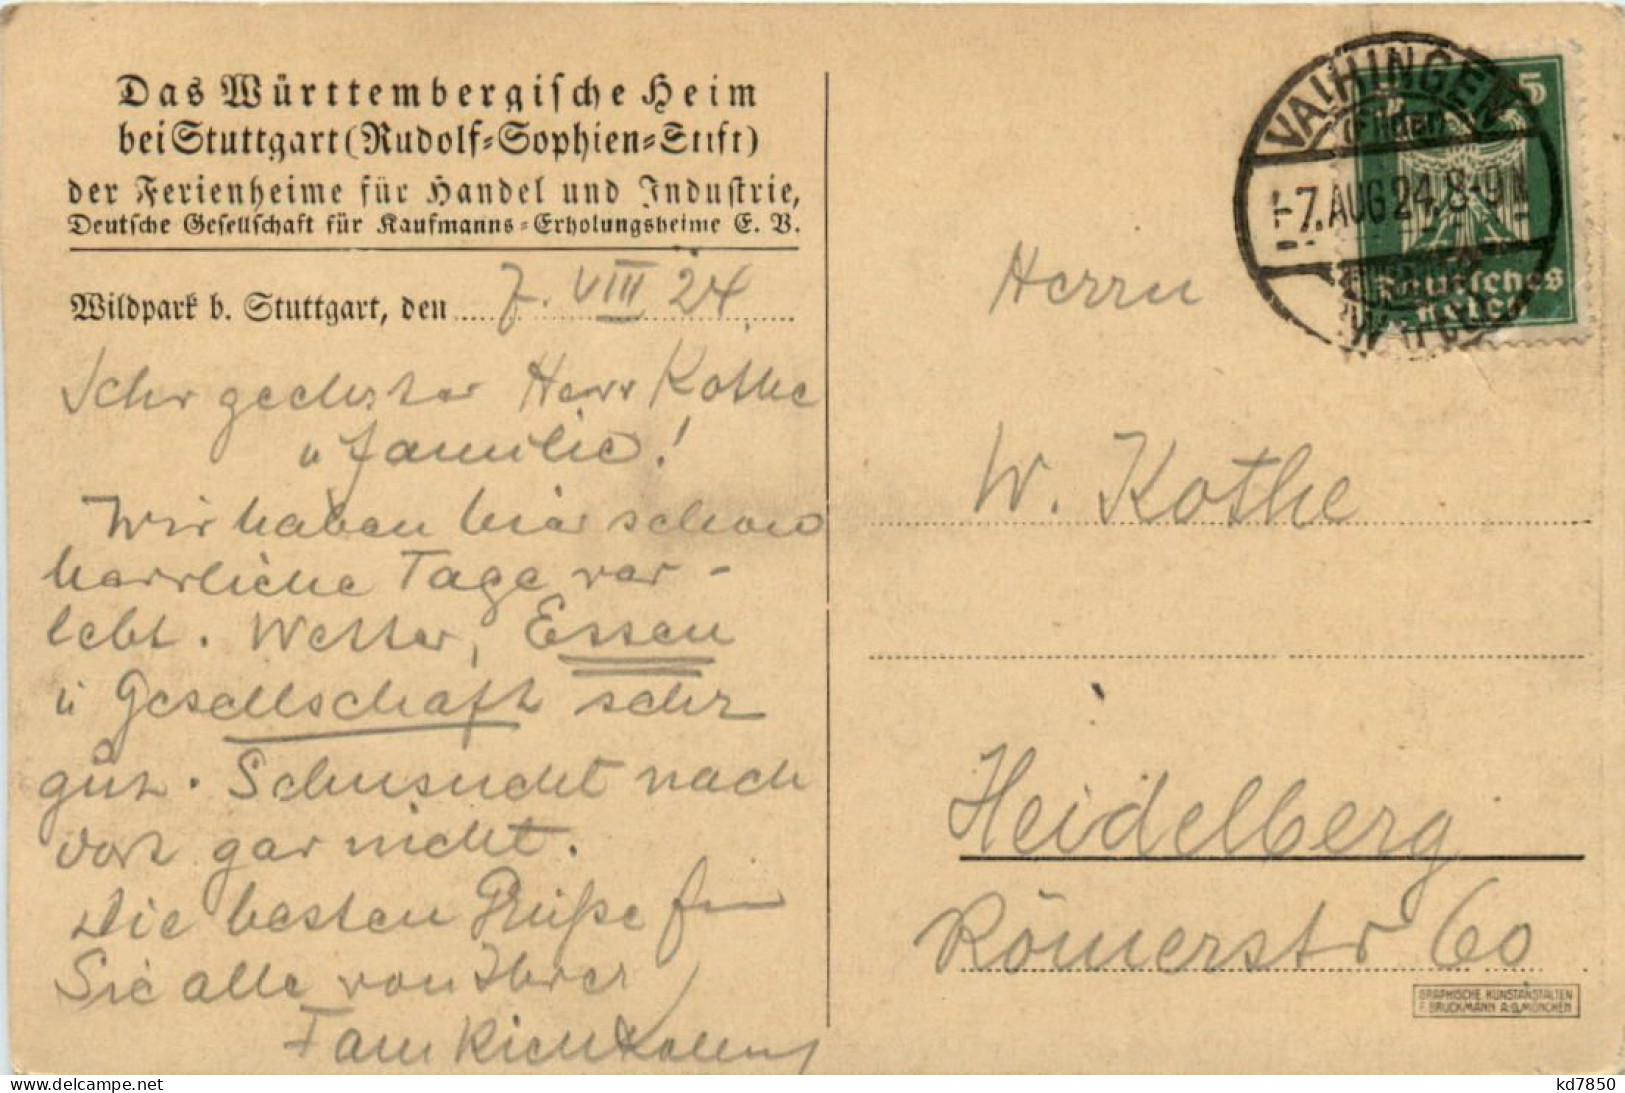 Das Württembergische Heim
bei Stuttgart (Rudolf=Sophien=Stift)
der Ferienheime für Handel und Industrie,
Deutsche Gesellschaft für Kaufmanns=Erholungsheime E. V.
Wildpark b. Stuttgart, den 7. VIII 24.
Sehr geehrter Herr Kothe
u Familie!
Wir haben hier schon
herrliche Tage ver-
lebt. Wetter, Essen
u Gesellschaft sehr
gut. Sehnsucht nach
dort gar nicht.
Die besten Grüße für
Sie alle von Ihrer
Fam
VAIHINGEN
(Fildern)
-7.AUG 24. 8-9 N
5
Deutsches
Reich
Herrn
W. Kothe
Heidelberg
Römerstr 60
GRAPHISCHE KUNSTANSTALTEN
F. BRUCKMANN A.G. MÜNCHEN
kd7850